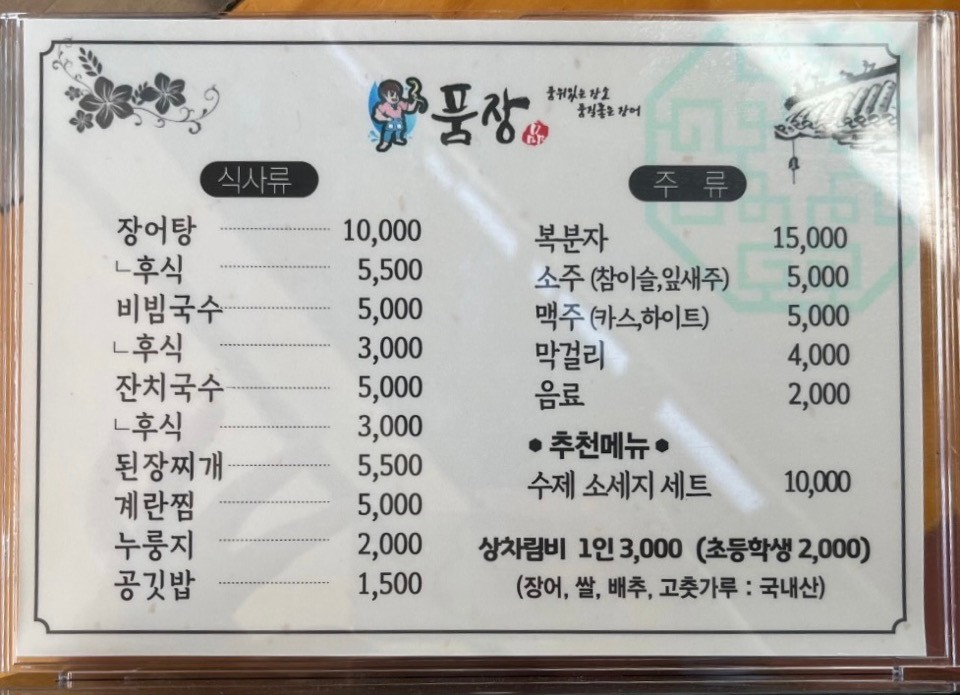 품장
품위있는 장소
품질좋은 장어
식사류
장어탕 10,000
ㄴ후식 5,500
비빔국수 5,000
ㄴ후식 3,000
잔치국수 5,000
ㄴ후식 3,000
된장찌개 5,500
계란찜 5,000
누룽지 2,000
공깃밥 1,500
주 류
복분자 15,000
소주 (참이슬,잎새주) 5,000
맥주 (카스,하이트) 5,000
막걸리 4,000
음료 2,000
• 추천메뉴 •
수제 소세지 세트 10,000
상차림비 1인 3,000 (초등학생 2,000)
(장어, 쌀, 배추, 고춧가루 : 국내산)